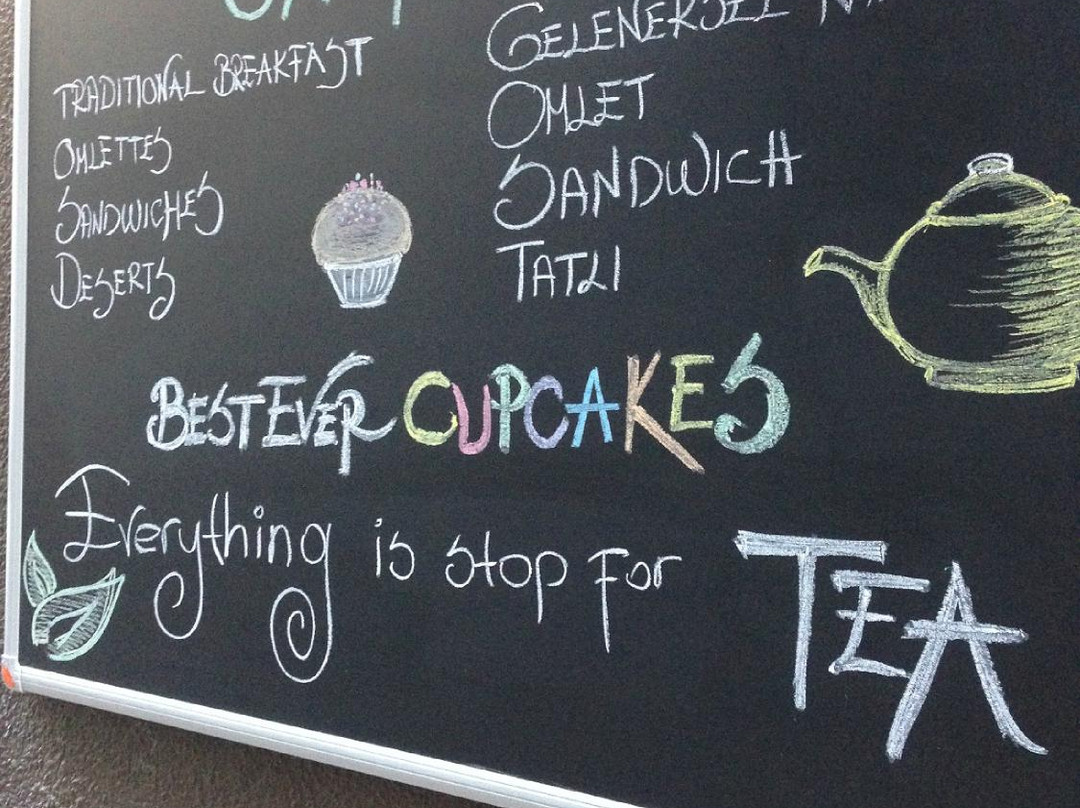 TRADITIONAL BREAKFAST
OMLETTES
SANDWICHES
DESERTS
GELENERSEL
OMLET
SANDWICH
TATLI
BEST EVER CUPCAKES
Everything is stop for TEA